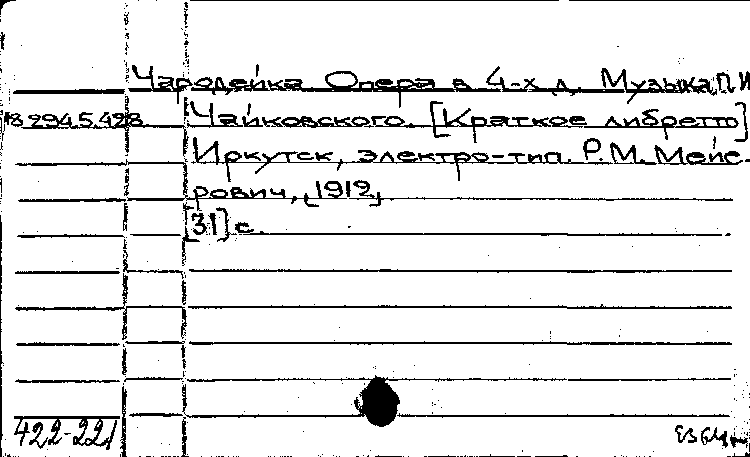 Чародейка. Опера в 4-х д. Музыка П.И
18.294.5.428 Чайковского. [Краткое либретто]
Иркутск, электро-тип. Р.М. Мейе-
рович, [1912]
[31] с.
422-221